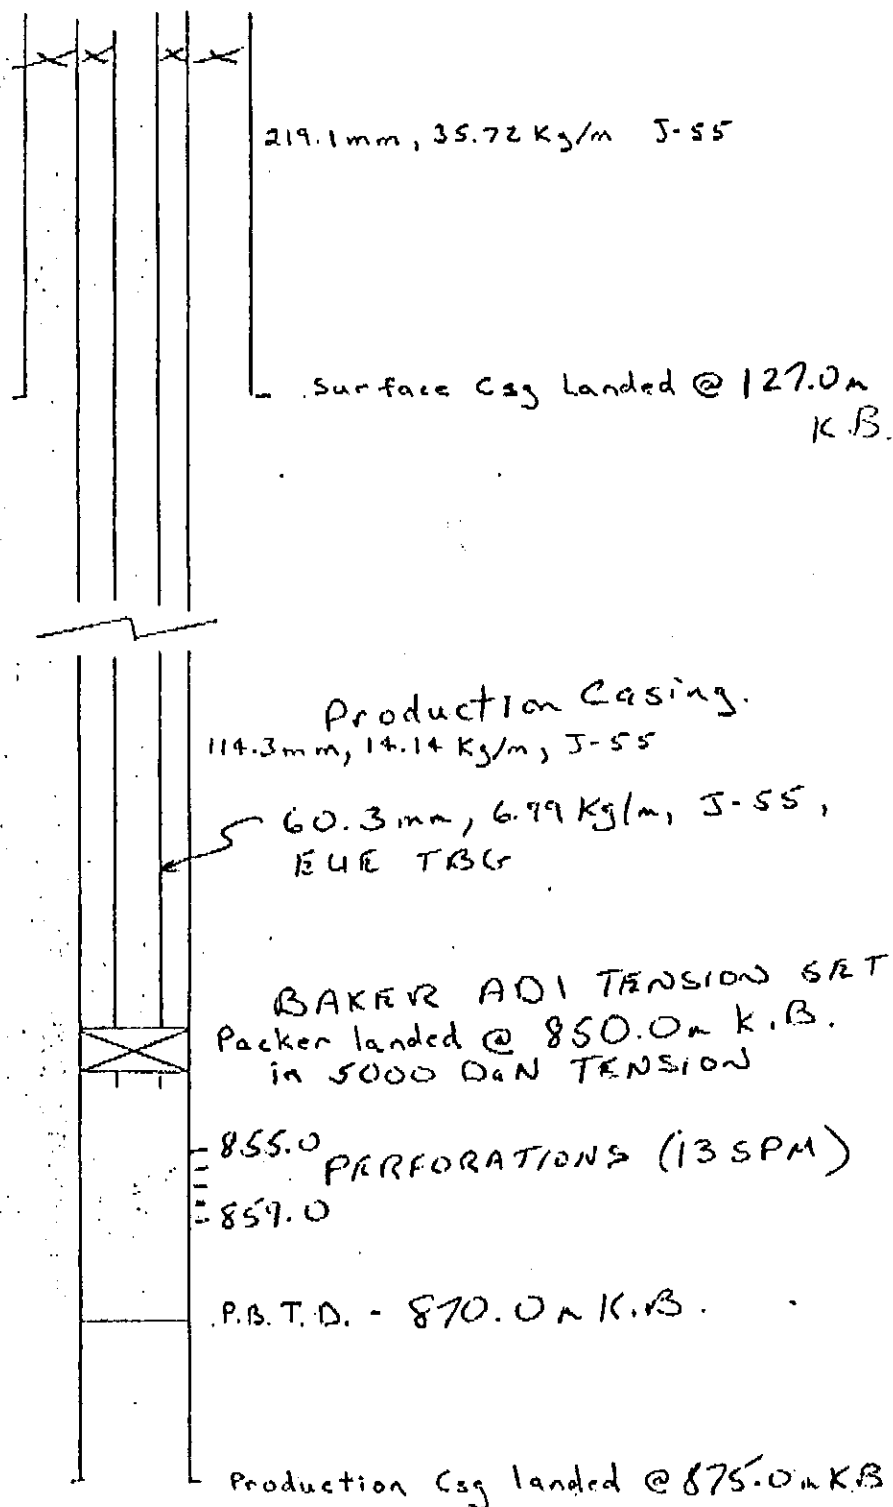 219.1mm, 35.72 Kg/m J-55
Surface Csg Landed @ 127.0m
K.B.
Production Casing.
114.3mm, 14.14 Kg/m, J-55
60.3mm, 6.99 Kg/m, J-55,
EUE TBG
BAKER AD1 TENSION SET
Packer landed @ 850.0m K.B.
in 5000 DaN TENSION
855.0
PERFORATIONS (13 SPM)
859.0
P.B.T.D. - 870.0m K.B.
Production Csg landed @ 875.0m K.B